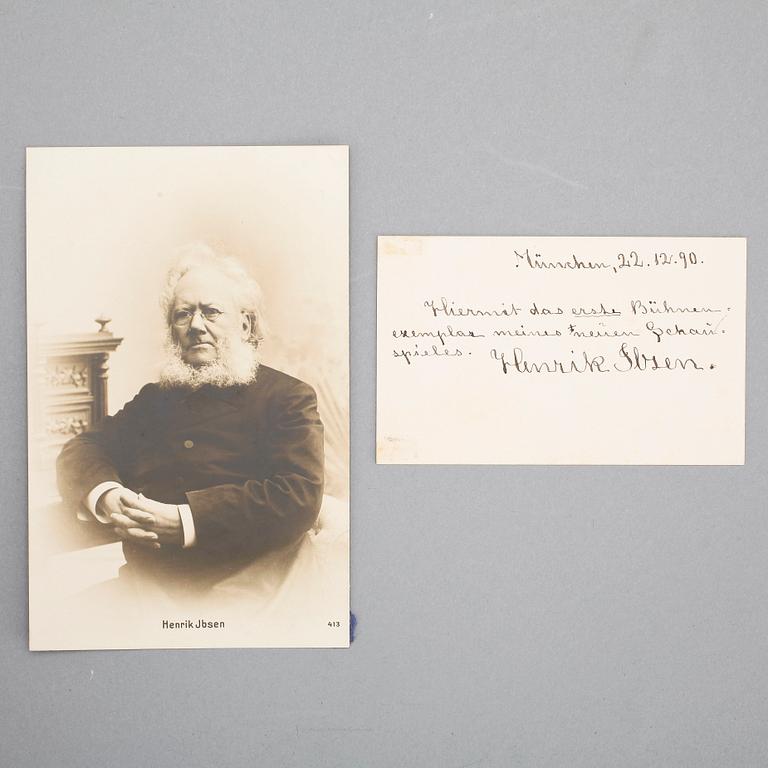 Henrik Jbsen
413
München, 22.12.90.
Hiermit das erste Bühnen-
exemplar meines neuen Schau-
spieles. Henrik Ibsen.